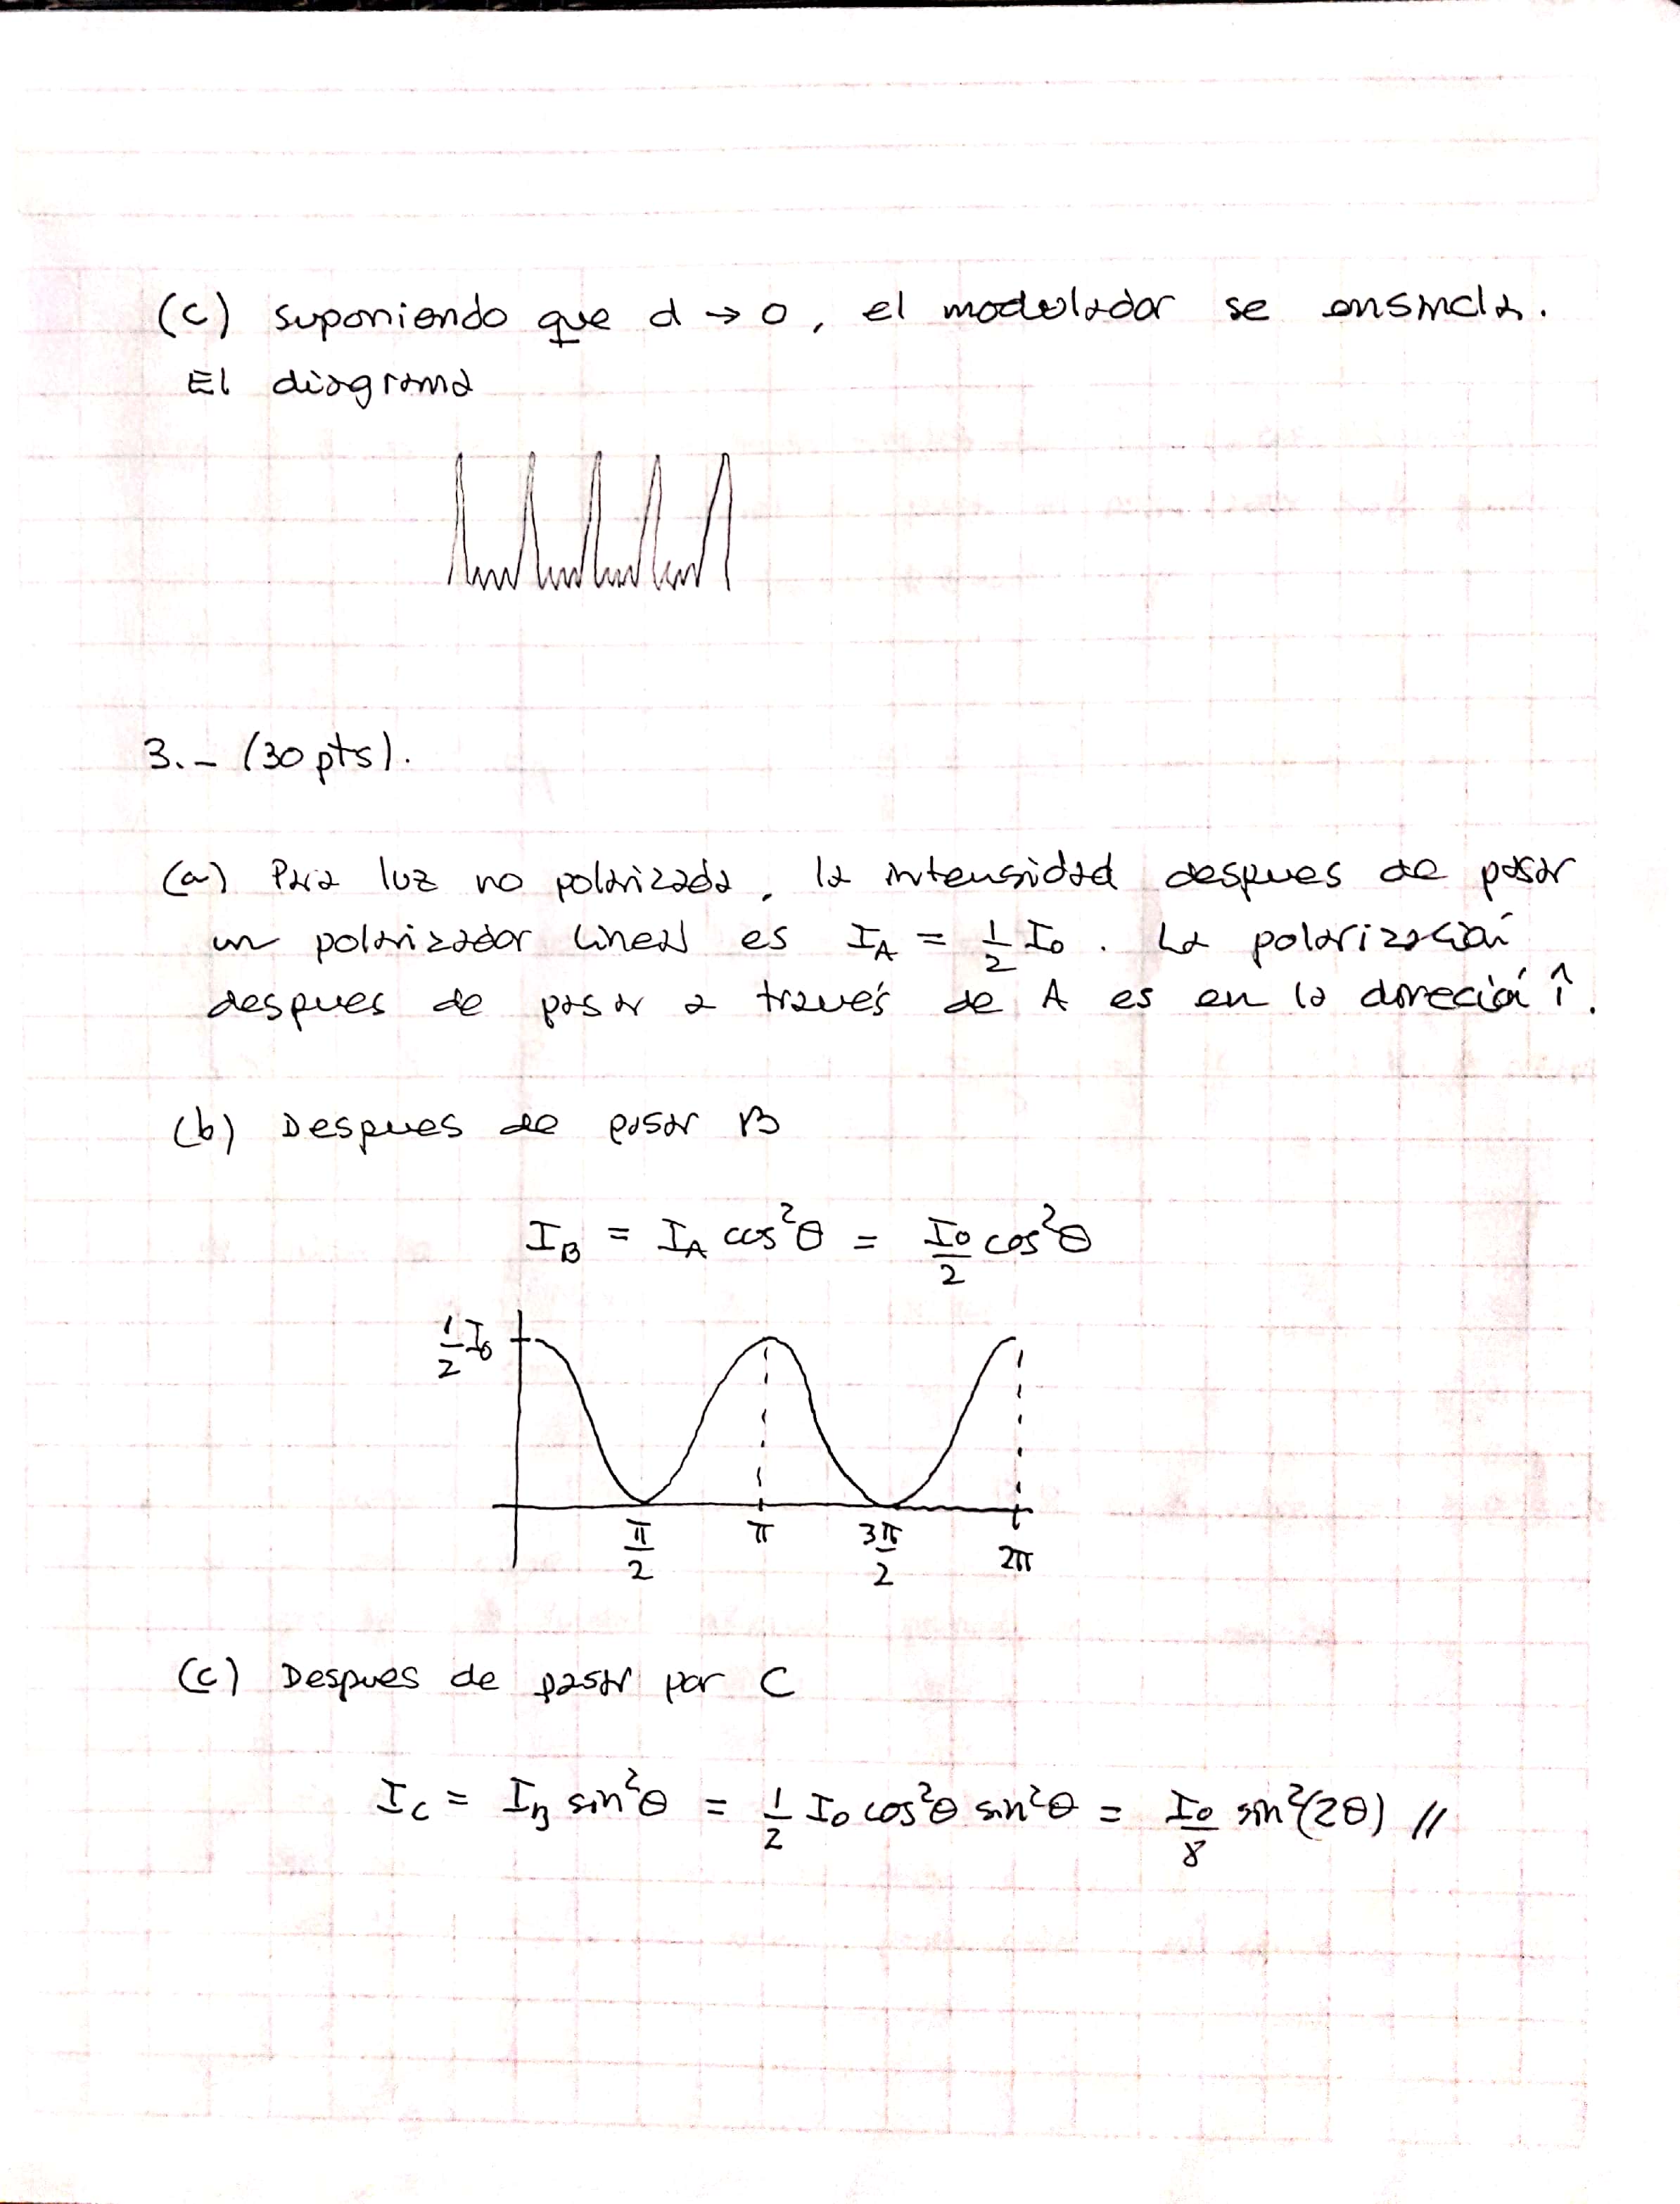 (c) suponiendo que d → 0, el modulador se ensancha.
El diagrama
3.- (30 pts).
(a) Para luz no polarizada, la intensidad despues de pasar
un polarizador lineal es I_A = 1/2 I_0. La polarización
despues de pasar a través de A es en la direción î.
(b) Despues de pasar B
I_B = I_A cos²θ = I_0/2 cos²θ
1/2 I_0
π/2 π 3π/2 2π
(c) Despues de pasar por C
I_C = I_B sin²θ = 1/2 I_0 cos²θ sin²θ = I_0/8 sin²(2θ) //